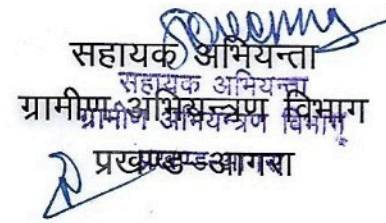 सहायक अभियन्ता
सहायक अभियन्ता
ग्रामीण अभियन्त्रण विभाग
ग्रामीण अभियन्त्रण विभाग
प्रखण्ड-आगरा